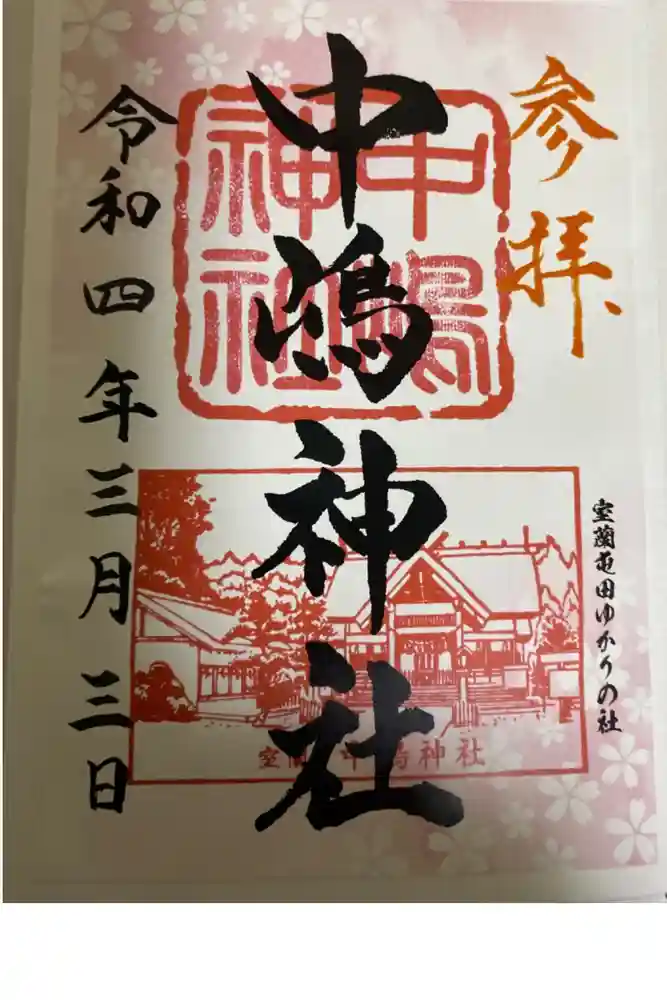 参拝
室蘭屯田ゆかりの社
中嶋神社
中嶋
神社
令和四年三月三日
室蘭 中嶋神社